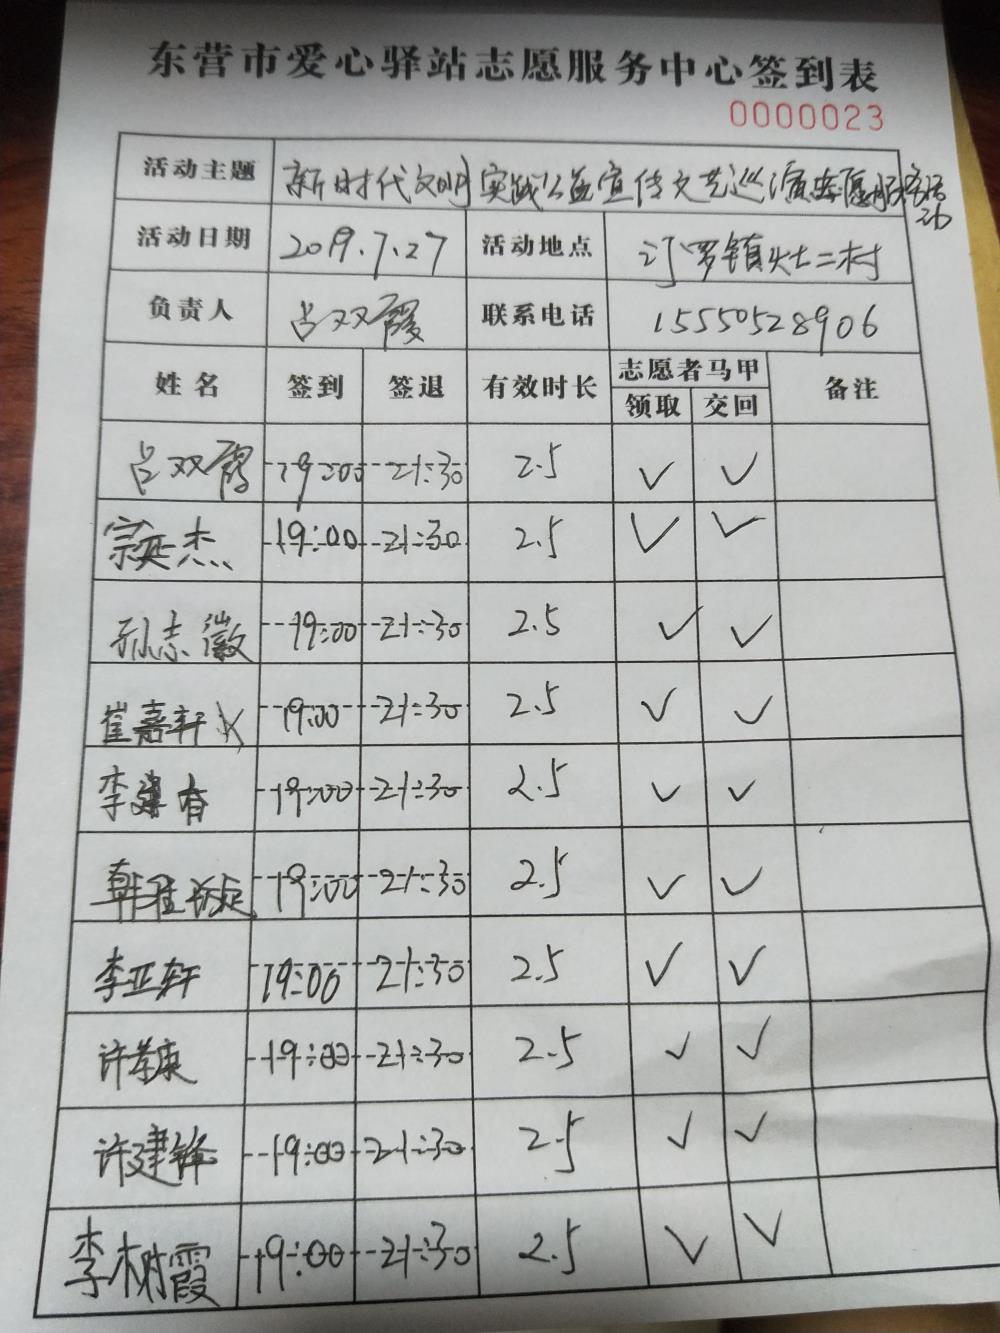 东营市爱心驿站志愿服务中心签到表
0000023
活动主题 新时代文明实践公益宣传文艺巡演志愿服务活动
活动日期 2019.7.27 活动地点 汀罗镇灶二村
负责人 吕双霞 联系电话 15550528906
姓名 签到 签退 有效时长 志愿者马甲 备注
领取 交回
吕双霞 19:00 21:30 2.5 ✓ ✓
宗延杰 19:00 21:30 2.5 ✓ ✓
孙志徽 19:00 21:30 2.5 ✓ ✓
崔嘉轩 19:00 21:30 2.5 ✓ ✓
李建有 19:00 21:30 2.5 ✓ ✓
韩雅 19:00 21:30 2.5 ✓ ✓
李亚轩 19:00 21:30 2.5 ✓ ✓
许孝康 19:00 21:30 2.5 ✓ ✓
许建锋 19:00 21:30 2.5 ✓ ✓
李树霞 19:00 21:30 2.5 ✓ ✓